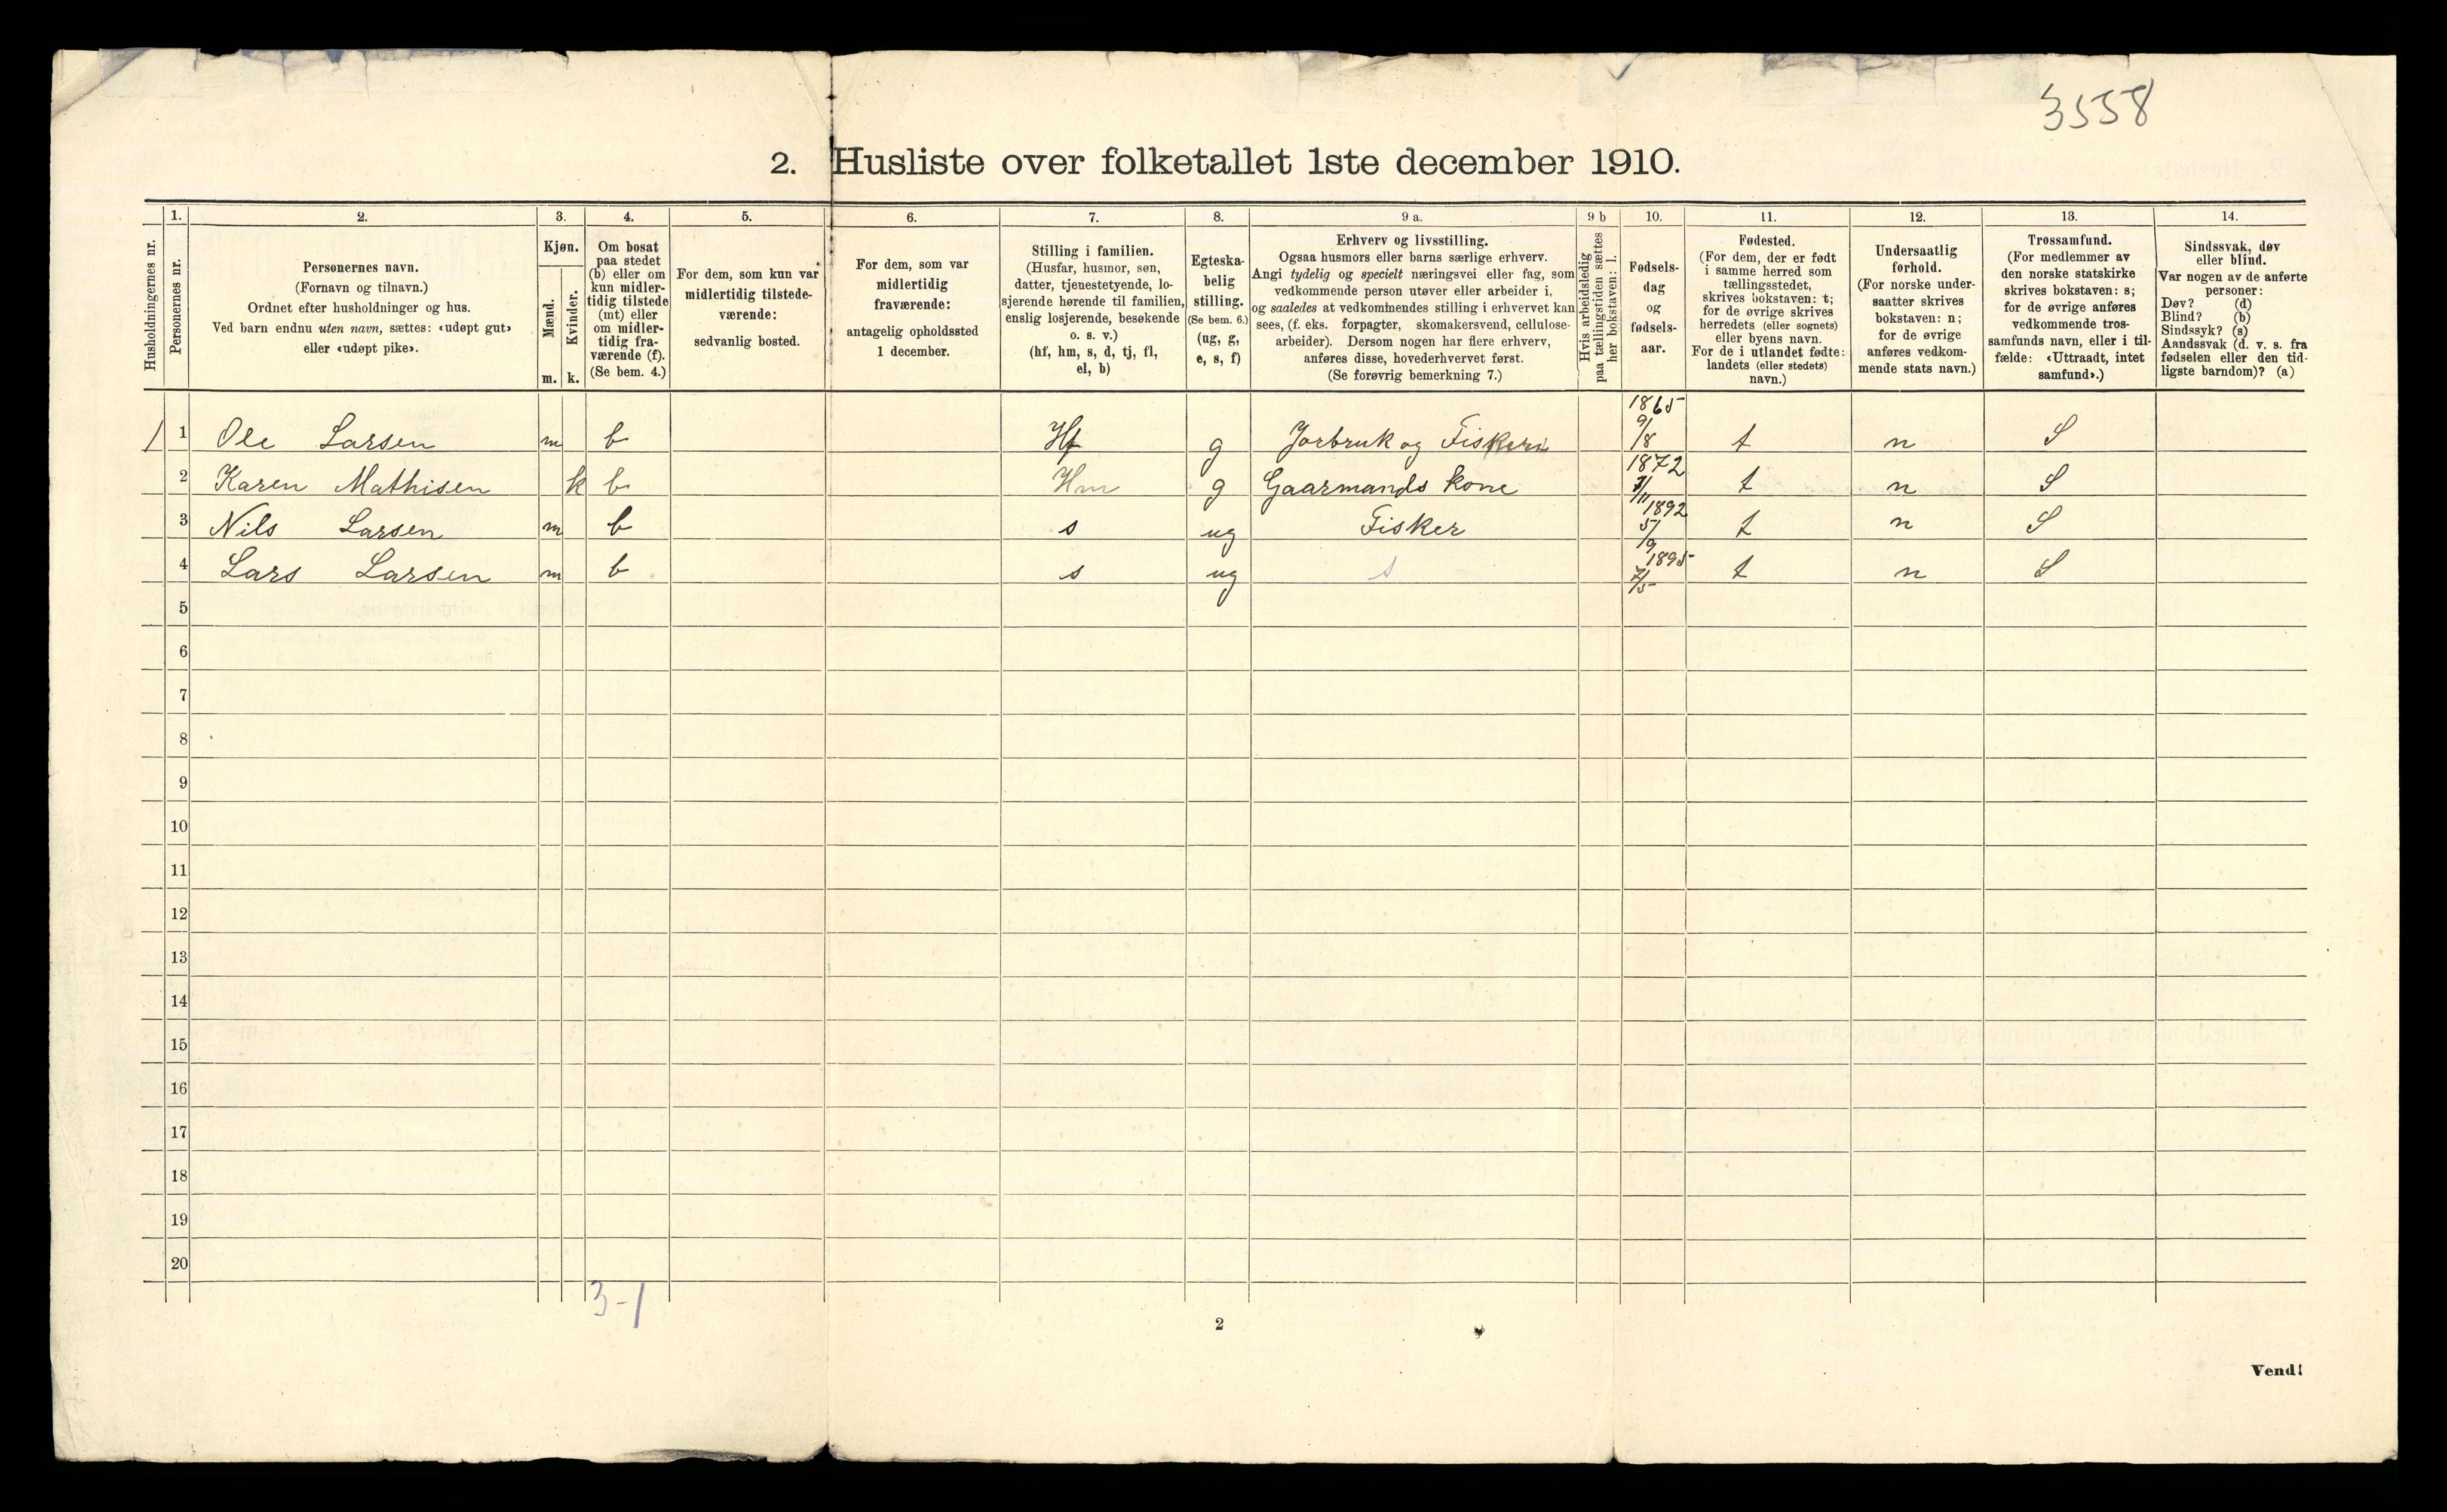 3558
2. Husliste over folketallet 1ste december 1910.
Husholdningernes nr.
1.
Personernes nr.
2.
Personernes navn.
(Fornavn og tilnavn.)
Ordnet efter husholdninger og hus.
Ved barn endnu uten navn, sættes: «udøpt gut»
eller «udøpt pike».
3.
Kjøn.
Mænd.
m.
Kvinder.
k.
4.
Om bosat
paa stedet
(b) eller om
kun midler-
tidig tilstede
(mt) eller
om midler-
tidig fra-
værende (f).
(Se bem. 4.)
5.
For dem, som kun var
midlertidig tilstede-
værende:
sedvanlig bosted.
6.
For dem, som var
midlertidig
fraværende:
antagelig opholdssted
1 december.
7.
Stilling i familien.
(Husfar, husmor, søn,
datter, tjenestetyende, lo-
sjerende hørende til familien,
enslig losjerende, besøkende
o. s. v.)
(hf, hm, s, d, tj, fl,
el, b)
8.
Egteska-
belig
stilling.
(Se bem. 6.)
(ug, g,
e, s, f)
9 a.
Erhverv og livsstilling.
Ogsaa husmors eller barns særlige erhverv.
Angi tydelig og specielt næringsvei eller fag, som
vedkommende person utøver eller arbeider i,
og saaledes at vedkommendes stilling i erhvervet kan
sees, (f. eks. forpagter, skomakersvend, cellulose-
arbeider). Dersom nogen har flere erhverv,
anføres disse, hovederhvervet først.
(Se forøvrig bemerkning 7.)
9 b
Hvis arbeidsledig
paa tællingstiden sættes
her bokstaven: l.
10.
Fødsels-
dag
og
fødsels-
aar.
11.
Fødested.
(For dem, der er født
i samme herred som
tællingsstedet,
skrives bokstaven: t;
for de øvrige skrives
herredets (eller sognets)
eller byens navn.
For de i utlandet fødte:
landets (eller stedets)
navn.)
12.
Undersaatlig
forhold.
(For norske under-
saatter skrives
bokstaven: n;
for de øvrige
anføres vedkom-
mende stats navn.)
13.
Trossamfund.
(For medlemmer av
den norske statskirke
skrives bokstaven: s;
for de øvrige anføres
vedkommende tros-
samfunds navn, eller i til-
fælde: «Uttraadt, intet
samfund».)
14.
Sindssvak, døv
eller blind.
Var nogen av de anførte
personer:
Døv? (d)
Blind? (b)
Sindssyk? (s)
Aandssvak (d. v. s. fra
fødselen eller den tid-
ligste barndom)? (a)
1 1 Ole Larsen m b Hf g Jorbruk og Fiskeri 1865 9/8 t n S
2 Karen Mathisen k b Hm g Gaarmands kone 1872 /11 t n S
3 Nils Larsen m b s ug Fisker 1892 5/9 t n S
4 Lars Larsen m b s ug s 1895 7/5 t n S
5
6
7
8
9
10
11
12
13
14
15
16
17
18
19
20
3-1
2
Vend!